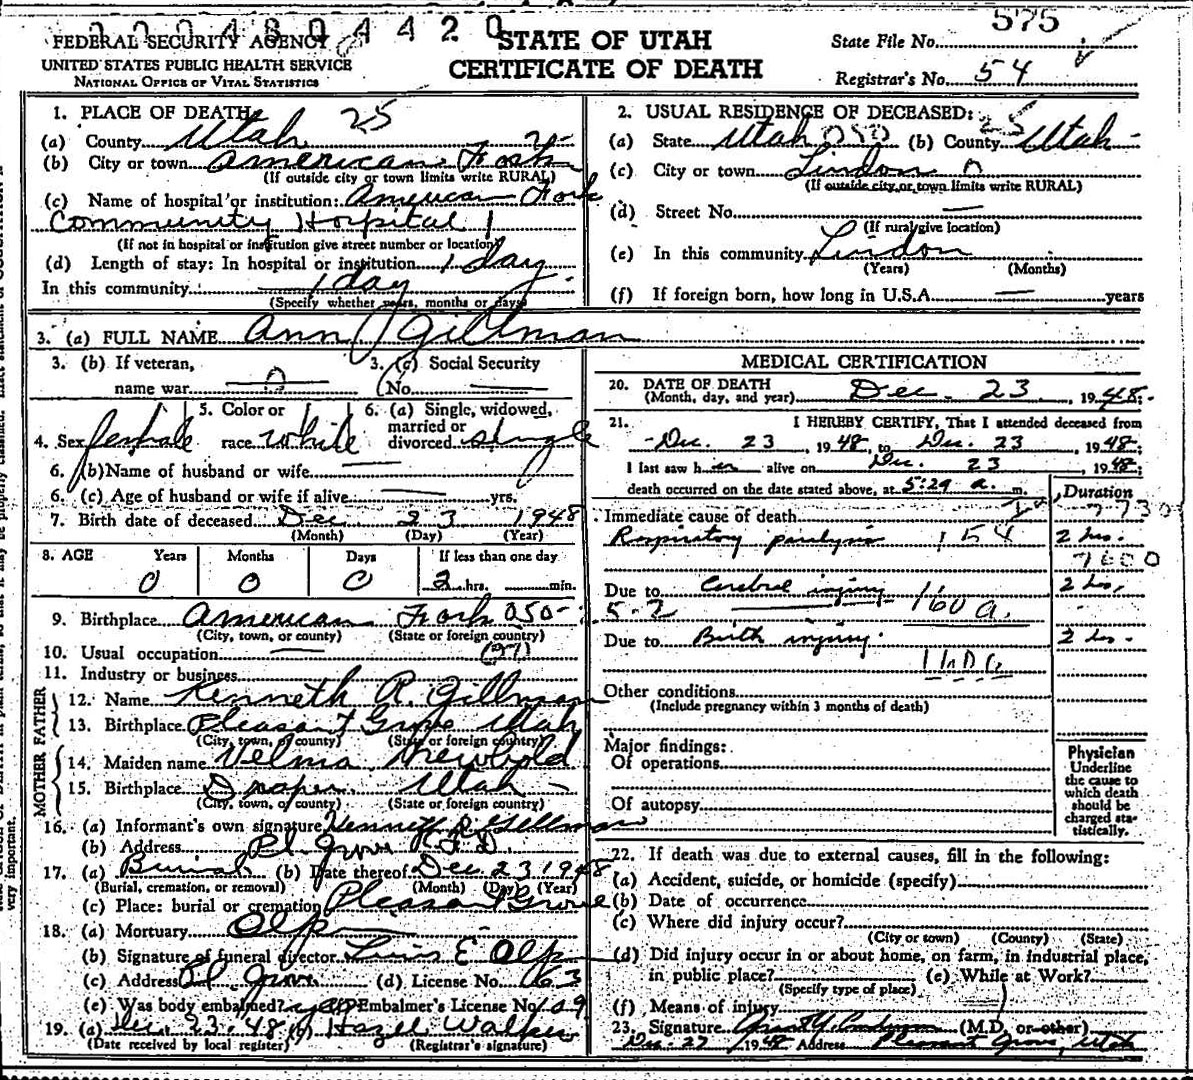 0004804420
575
FEDERAL SECURITY AGENCY
UNITED STATES PUBLIC HEALTH SERVICE
NATIONAL OFFICE OF VITAL STATISTICS
STATE OF UTAH
CERTIFICATE OF DEATH
State File No.
Registrar's No. 54
1. PLACE OF DEATH: 25
(a) County Utah
(b) City or town American Fork
(If outside city or town limits write RURAL)
(c) Name of hospital or institution: American Fork
Community Hospital
(If not in hospital or institution give street number or location)
(d) Length of stay: In hospital or institution 1 day
In this community 1 day
(Specify whether years, months or days)
2. USUAL RESIDENCE OF DECEASED: 25
(a) State Utah 050 (b) County Utah
(c) City or town Lindon 0
(If outside city or town limits write RURAL)
(d) Street No. —
(If rural give location)
(e) In this community Lindon
(Years) (Months)
(f) If foreign born, how long in U.S.A. — years
3. (a) FULL NAME Ann Gillman
3. (b) If veteran, name war
3. (c) Social Security No. —
4. Sex female
5. Color or race white
6. (a) Single, widowed, married or divorced single
6. (b) Name of husband or wife —
6. (c) Age of husband or wife if alive — yrs.
7. Birth date of deceased Dec 23 1948
(Month) (Day) (Year)
8. AGE Years Months Days If less than one day
0 0 0 2 hrs. min.
9. Birthplace American Fork 050
(City, town, or county) (State or foreign country)
10. Usual occupation —
11. Industry or business
FATHER
12. Name Kenneth R. Gillman
13. Birthplace Pleasant Grove Utah
(City, town, or county) (State or foreign country)
MOTHER
14. Maiden name Velma Newbold
15. Birthplace Draper Utah
(City, town, or county) (State or foreign country)
16. (a) Informant's own signature Kenneth R. Gillman
(b) Address Pl. Grove R.F.D.
17. (a) Burial (b) Date thereof Dec. 23 1948
(Burial, cremation, or removal) (Month) (Day) (Year)
(c) Place: burial or cremation Pleasant Grove
18. (a) Mortuary Olpin
(b) Signature of funeral director E Olpin
(c) Address Pl Grove (d) License No. 163
(e) Was body embalmed? yes (f) Embalmer's License No. 109
19. (a) Dec. 23-48 (b) Hazel Walker
(Date received by local register) (Registrar's signature)
MEDICAL CERTIFICATION
20. DATE OF DEATH
(Month, day, and year) Dec. 23, 1948
21. I HEREBY CERTIFY, That I attended deceased from
Dec. 23, 1948, to Dec. 23, 1948
I last saw her alive on Dec. 23, 1948
death occurred on the date stated above, at 5:29 a. m.
Duration
Immediate cause of death 7730
Respiratory paralysis 154 2 hrs.
7600
Due to Cerebral injury 160 a. 2 hrs.
5-2
Due to Birth injury 2 hrs.
Other conditions
(Include pregnancy within 3 months of death)
Major findings:
Of operations
Of autopsy
Physician
Underline
the cause to
which death
should be
charged sta-
tistically.
22. If death was due to external causes, fill in the following:
(a) Accident, suicide, or homicide (specify)
(b) Date of occurrence
(c) Where did injury occur?
(City or town) (County) (State)
(d) Did injury occur in or about home, on farm, in industrial place,
in public place? (e) While at Work?
(Specify type of place)
(f) Means of injury
23. Signature (M.D. or other)
Dec-27, 1948 Address Pleasant Grove, Utah
very important.